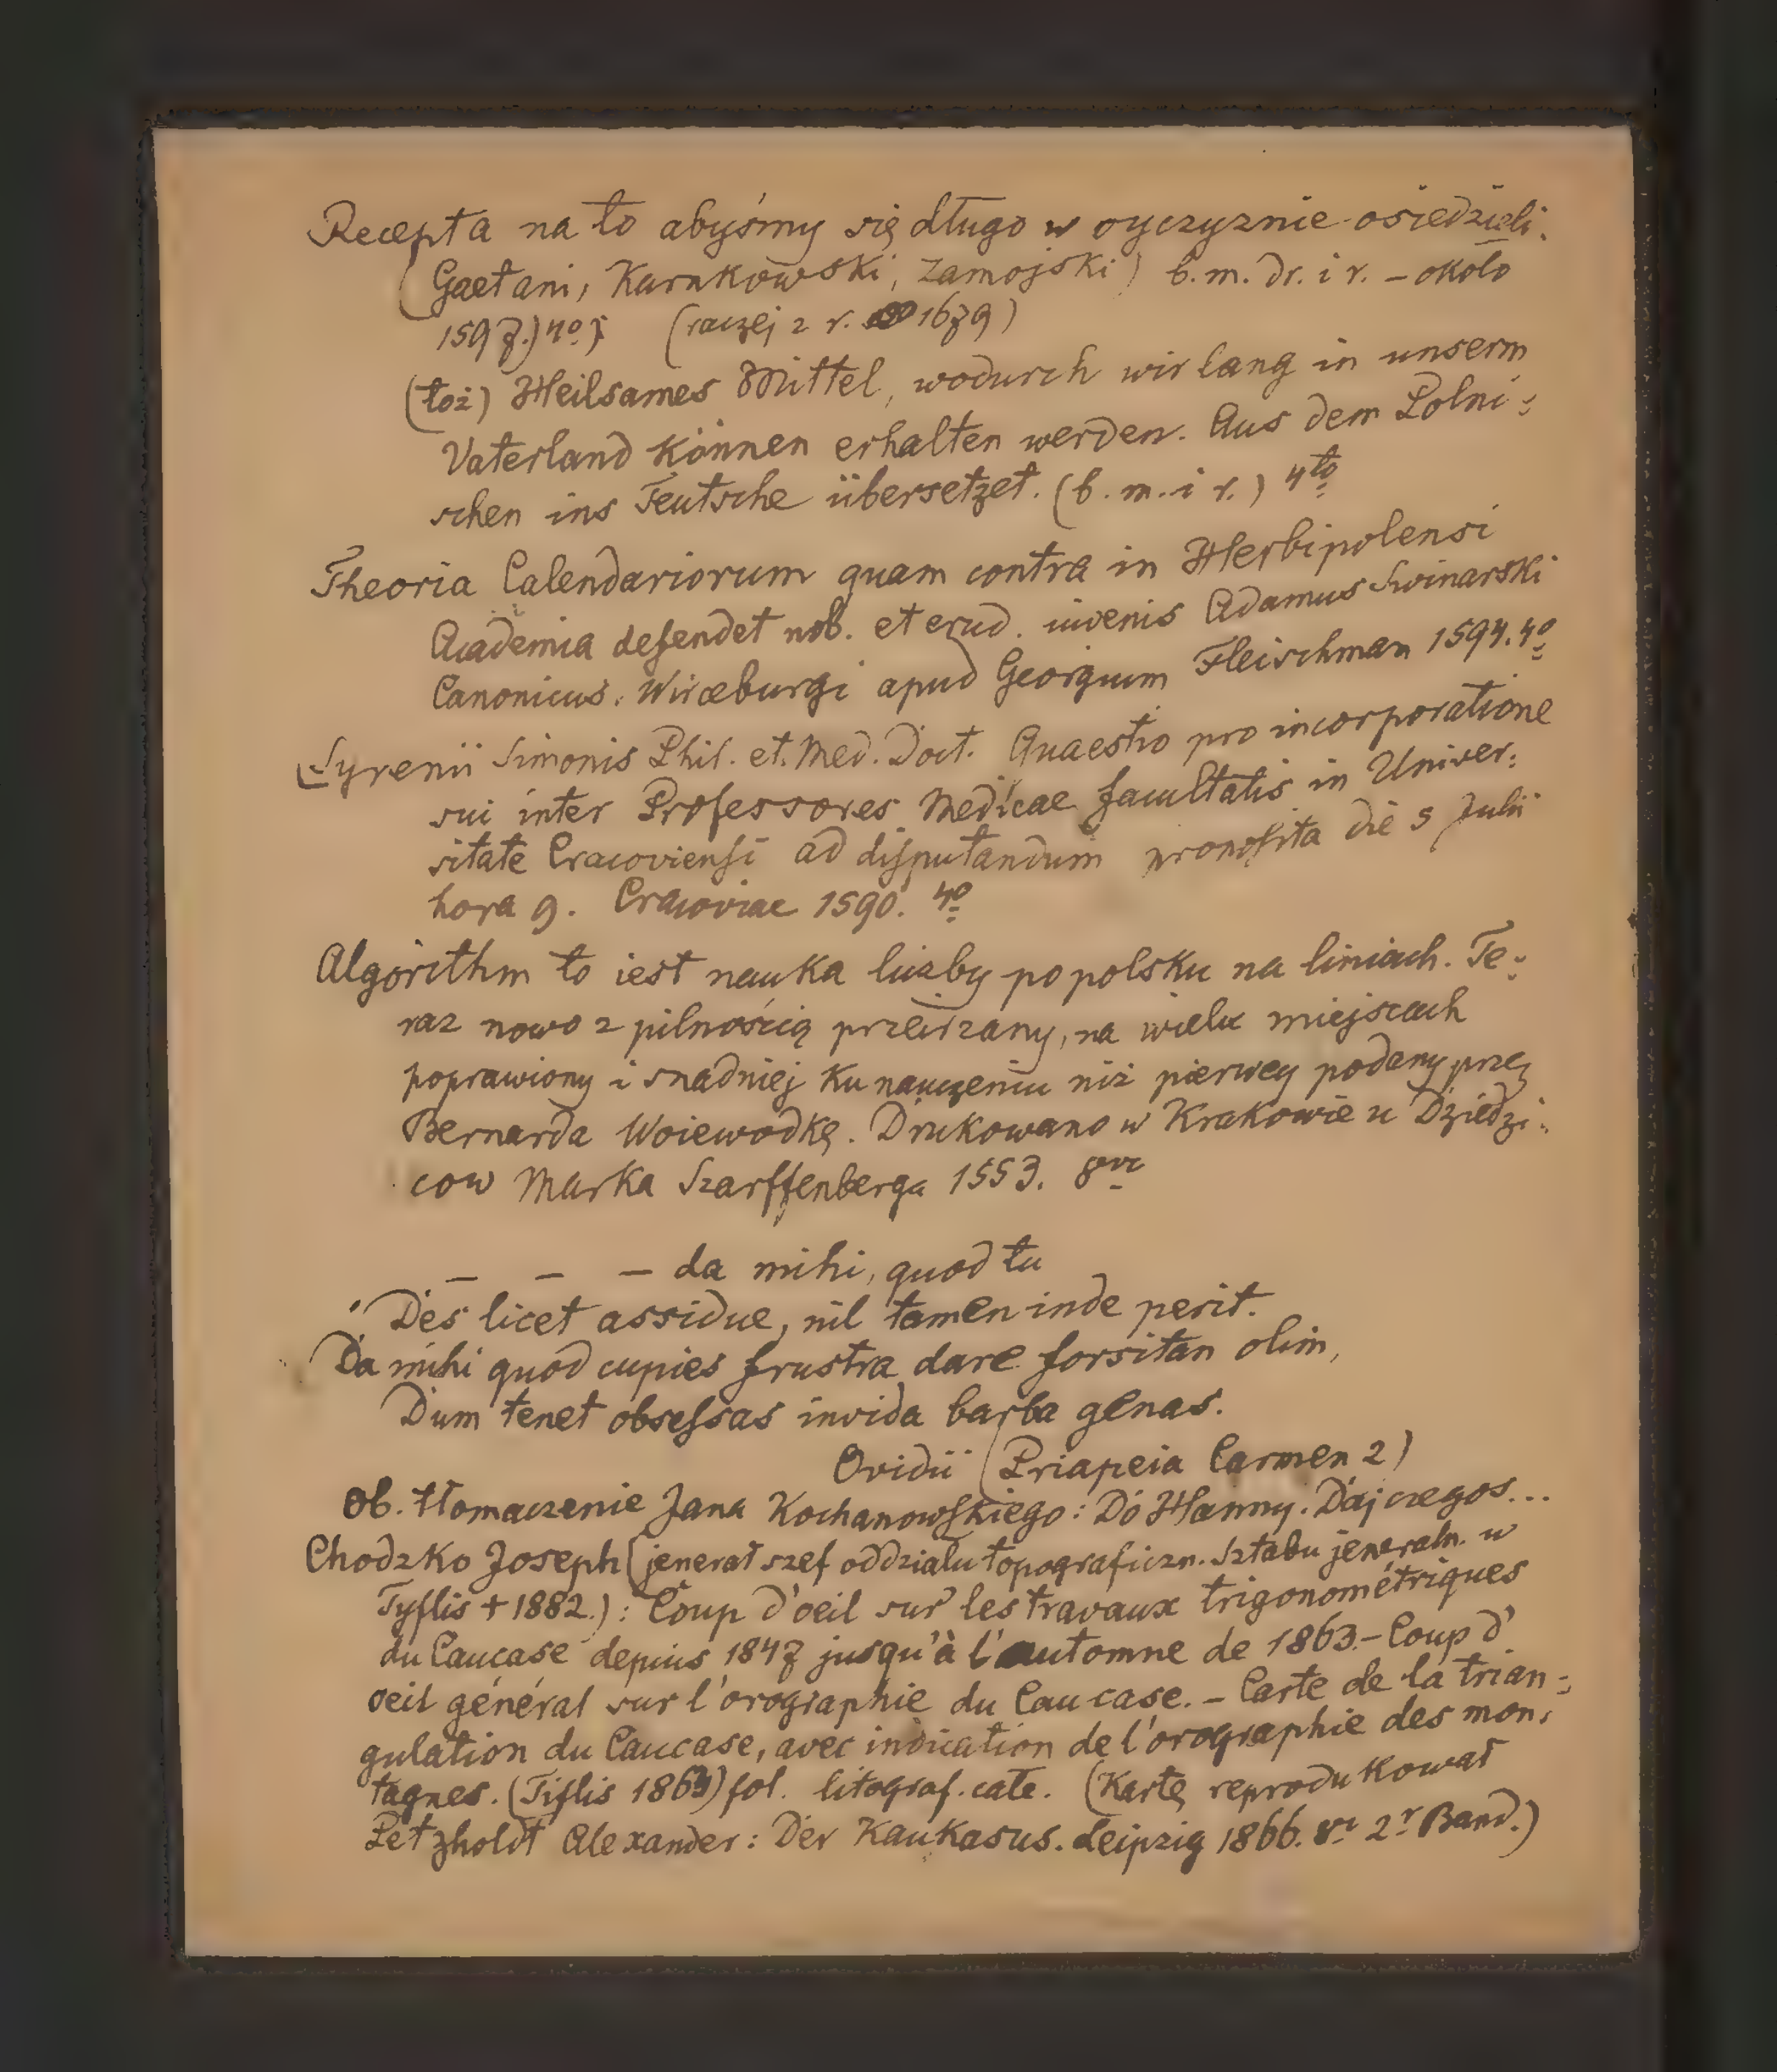 Recepta na to abyśmy się długo w oyczyznie osiedzieli.
(Gaetani, Karnkowski, Zamojski) b.m. dr. i r. – około
1597.) 4º; (raczej z r. 1679)
(toż) Heilsames Mittel, wodurch wir lang in unserm
Vaterland können erhalten werden. Aus dem Polni-
schen ins Teutsche übersetzet. (b. m. i r.) 4to
Theoria Calendariorum quam contra in Herbipolensi
Academia defendet nob. et erud. iuvenis Adamus Swinarski
Canonicus. Wirceburgi apud Georgium Fleischman 1594. 4º
Syrenii Simonis Phil. et. Med. Doct. Quaestio pro incorporatione
sui inter Professores Medicae facultatis in Univer-
sitate Cracoviensi ad disputandum proposita die 5 Julii
hora 9. Cracoviae 1590. 4º
Algorithm to iest nauka liczby po polsku na liniach. Te-
raz nowo z pilnością przeirzany, na wielu miejscach
poprawiony i snadniej ku nauczeniu niż pierwey podany przez
Bernarda Woiewodkę. Drukowano w Krakowie u Dziedzi-
cow Marka Szarffenberga 1553. 8vc
– – – da mihi, quod tu
"Des licet assidue, nil tamen inde perit.
Da mihi quod cupies frustra dare forsitan olim,
Dum tenet obsessas invida barba genas.
Ovidii (Priapeia Carmen 2)
Ob. tłomaczenie Jana Kochanowskiego: Do Hanny. Daj czegos...
Chodzko Joseph (jenerał szef oddziału topograficzn. Sztabu jeneraln. w
Tyflis + 1882.): Coup d'oeil sur les travaux trigonométriques
du Caucase depuis 1847 jusqu'à l'automne de 1863. – Coup d'
oeil général sur l'orographie du Caucase. – Carte de la trian-
gulation du Caucase, avec indication de l'orographie des mon-
tagnes. (Tiflis 1863) fol. litograf. całe. (Kartę reprodukował
Petzholdt Alexander: Der Kaukasus. Leipzig 1866. 8vc 2r Band.)